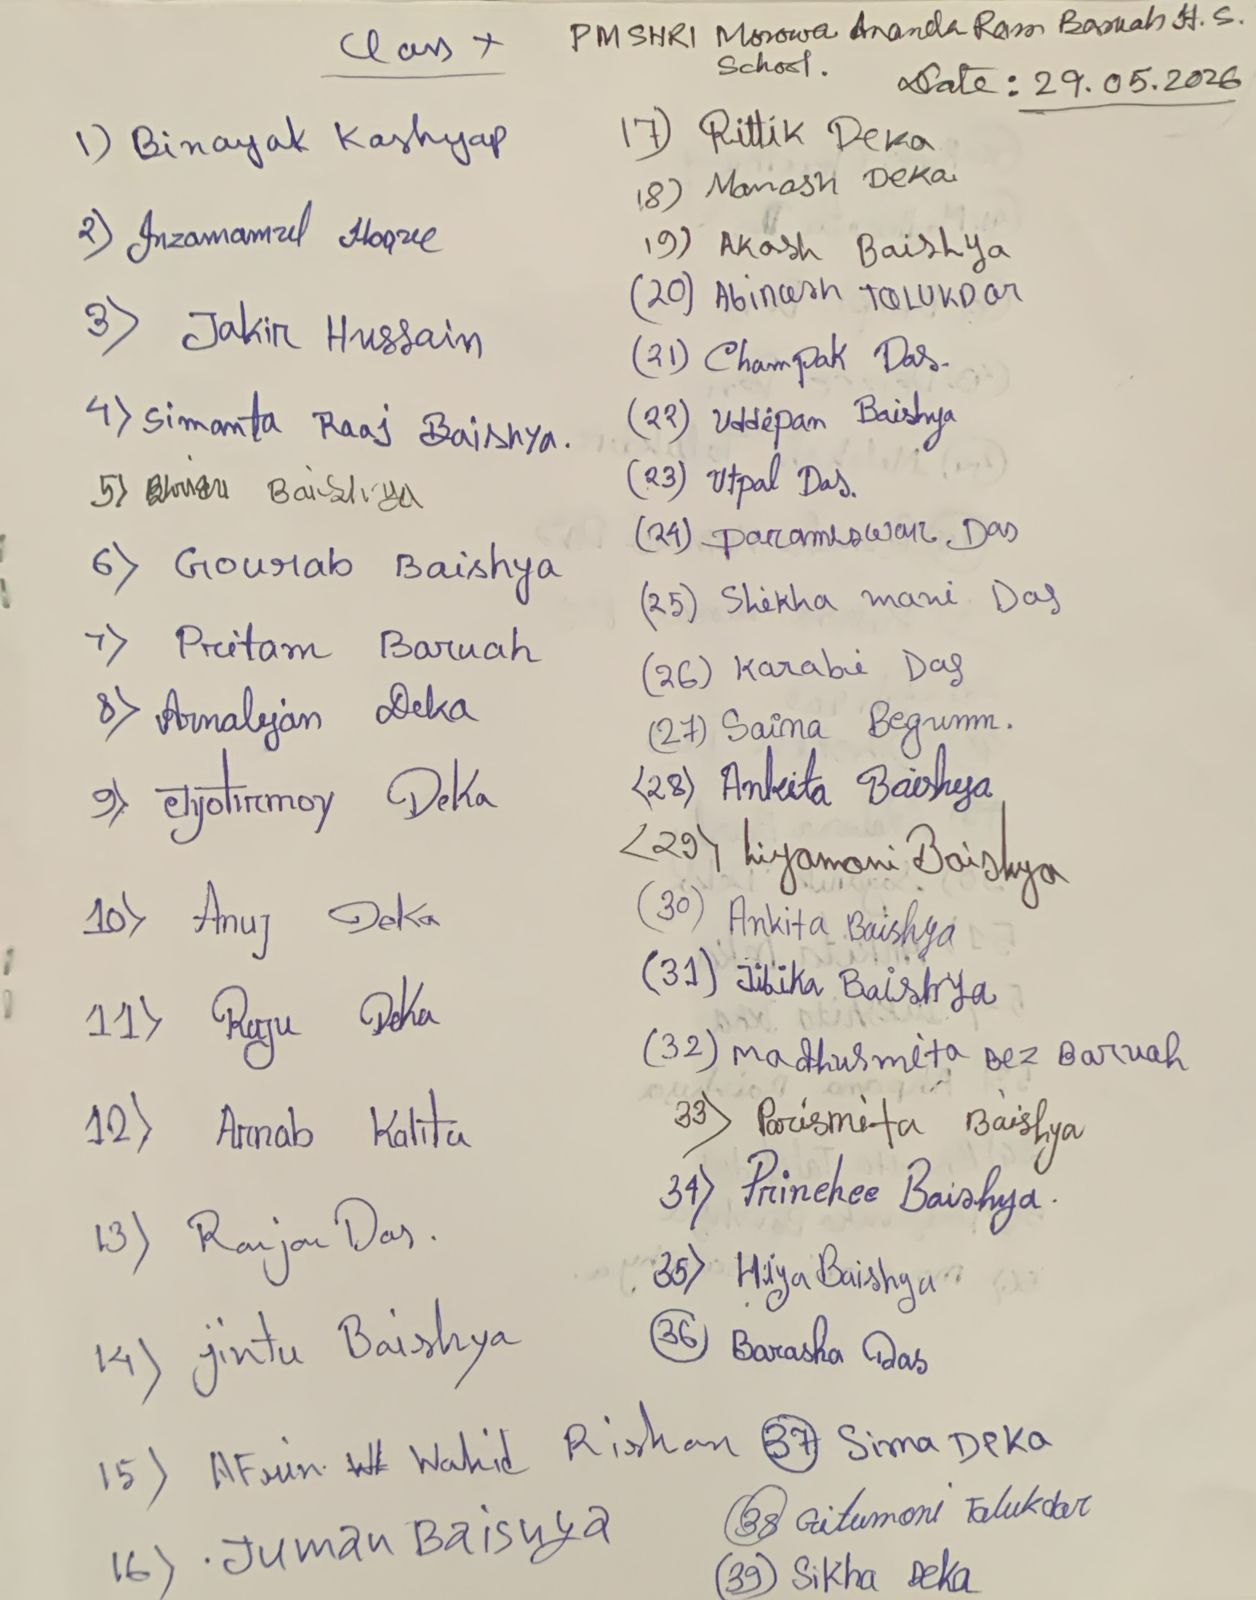 Class X
PM SHRI Morowa Ananda Ram Baruah H. S.
School.
Date : 29.05.2026
1) Binayak Kashyap
2) Inzamamul Hoque
3) Jakir Hussain
4) Simanta Raaj Baishya.
5) Baishya
6) Gourab Baishya
7) Pritam Baruah
8) Arnabjan Deka
9) Jyotirmoy Deka
10) Anuj Deka
11) Raju Deka
12) Arnab Kalita
13) Ranjan Das.
14) jintu Baishya
15) AFrin Wahid Rishan
16) Juman Baisyya
17) Rittik Deka
18) Manash Deka
19) Akash Baishya
(20) Abinash TALUKDar
(21) Champak Das.
(22) Uddipan Baishya
(23) Utpal Das.
(24) Parameswar Das
(25) Shikha mani Das
(26) Karabi Das
(27) Saina Begumm.
(28) Ankita Baishya
(29) hiyamoni Baishya
(30) Ankita Baishya
(31) Jibika Baishya
(32) Madhusmita Bez Baruah
33) Parismita Baishya
34) Prinekee Baishya.
35) Hiya Baishya
36 Barasha Das
37 Sima Deka
38 Gitumoni Talukdar
(39) Sikha Deka